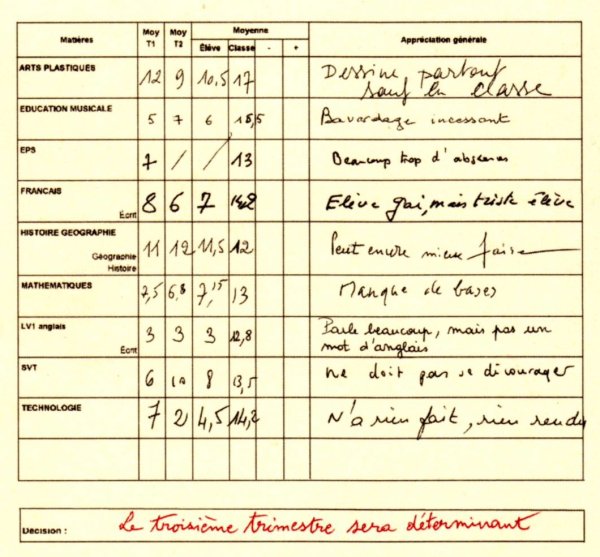 Matières Moy T1 Moy T2 Moyenne Appréciation générale
Élève Classe - +
ARTS PLASTIQUES 12 9 10,5 17 Dessine, partout
sauf en classe
EDUCATION MUSICALE 5 7 6 15,5 Bavardage incessant
EPS 7 / / 13 Beaucoup trop d'absences
FRANCAIS 8 6 7 Elève gai, mais triste élève
Écrit
HISTOIRE GEOGRAPHIE 11 12 11,5 12 Peut encore mieux faire
Géographie
Histoire
MATHEMATIQUES 7,5 6,8 7,15 13 Manque de bases
LV1 anglais 3 3 3 12,8 Parle beaucoup, mais pas un
Écrit mot d'anglais
SVT 6 10 8 13,5 Ne doit pas se décourager
TECHNOLOGIE 7 2 4,5 14,2 N'a rien fait, rien rendu
Décision : Le troisième trimestre sera déterminant